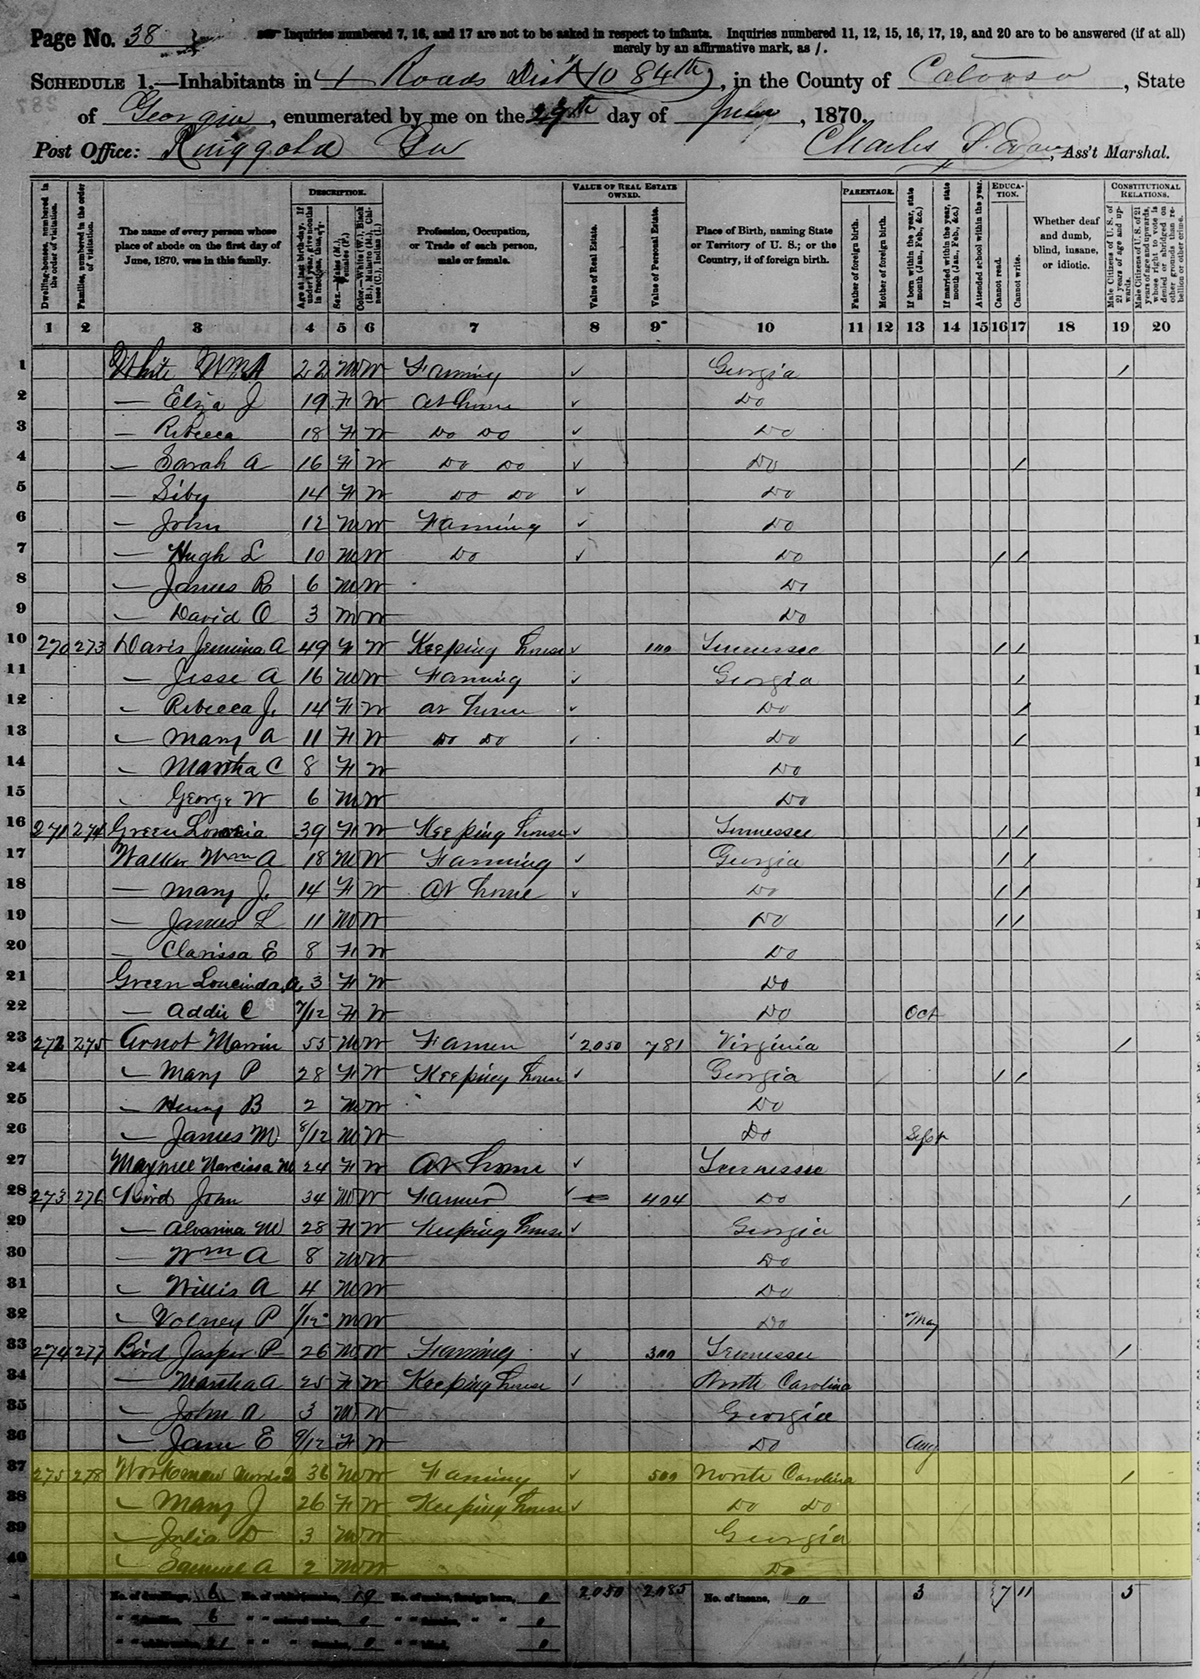 Page No. 38
Inquiries numbered 7, 16, and 17 are not to be asked in respect to infants. Inquiries numbered 11, 12, 15, 16, 17, 19, and 20 are to be answered (if at all)
merely by an affirmative mark, as /.
SCHEDULE 1.—Inhabitants in + Roads Dist (1084th), in the County of Catoosa, State
of Georgia, enumerated by me on the 29th day of June, 1870.
Post Office: Ringgold Ga Charles Ass't Marshal.
Dwelling-houses, numbered in the order of visitation.
Families, numbered in the order of visitation.
The name of every person whose place of abode on the first day of June, 1870, was in this family.
DESCRIPTION.
Age at last birth-day. If under 1 year, give months in fractions, thus, 3/12.
Sex.—Males (M.), Females (F.).
Color.—White (W.), Black (B.), Mulatto (M.), Chinese (C.), Indian (I.).
Profession, Occupation, or Trade of each person, male or female.
VALUE OF REAL ESTATE OWNED.
Value of Real Estate.
Value of Personal Estate.
Place of Birth, naming State or Territory of U. S.; or the Country, if of foreign birth.
PARENTAGE.
Father of foreign birth.
Mother of foreign birth.
If born within the year, state month (Jan., Feb., &c.)
If married within the year, state month (Jan., Feb., &c.)
Attended school within the year.
EDUCATION.
Cannot read.
Cannot write.
Whether deaf and dumb, blind, insane, or idiotic.
CONSTITUTIONAL RELATIONS.
Male Citizens of U. S. of 21 years of age and upwards.
Male Citizens of U. S. of 21 years of age and upwards, whose right to vote is denied or abridged on other grounds than rebellion or other crime.
1 2 3 4 5 6 7 8 9 10 11 12 13 14 15 16 17 18 19 20
1 White Wm A 22 M W Farming ✓ Georgia /
2 — Eliza J 19 F W At home ✓ Do
3 — Rebecca 18 F W Do Do ✓ Do
4 — Sarah A 16 F W Do Do ✓ Do /
5 — Siby 14 F W Do Do ✓ Do
6 — John 12 M W Farming ✓ Do
7 — Hugh L 10 M W Do ✓ Do / /
8 — James R 6 M W Do
9 — David O 3 M W Do
10 270 273 Davis Jemima A 49 F W Keeping house ✓ 100 Tennessee / /
11 — Jesse A 16 M W Farming ✓ Georgia /
12 — Rebecca J. 14 F W at home ✓ Do /
13 — Mary A 11 F W Do Do ✓ Do /
14 — Martha C 8 F W Do
15 George W 6 M W Do
16 271 274 Green 39 F W Keeping house ✓ Tennessee / /
17 Walker Wm A 18 M W Farming ✓ Georgia / /
18 — Mary J. 14 F W At home ✓ Do / /
19 — James L 11 M W Do / /
20 — Clarissa E 8 F W Do
21 Green Loucinda A. 3 F W Do
22 — Addie C /12 F W Do Oct
23 272 275 Arnot 55 M W Farmer ✓ 2050 781 Virginia /
24 — Mary P 28 F W Keeping house ✓ Georgia / /
25 — Henry B 2 M W Do
26 — James M 8/12 M W Do Sept
27 Narcissa M 24 F W At home ✓ Tennessee
28 273 276 John 34 M W Farmer 404 Do /
29 — M 28 F W Keeping house ✓ Georgia
30 — Wm A 8 M W Do
31 — Willis A 4 M W Do
32 — Volney P 1/12 M W Do May
33 274 277 Bird Jasper P 26 M W Farming ✓ 300 Tennessee /
34 — Martha A 25 F W Keeping house / North Carolina
35 — John A 3 M W Georgia
36 — Jane E 9/12 F W Do Aug
37 275 278 Workman 36 M W Farming ✓ 500 North Carolina /
38 — Mary J 26 F W Keeping house ✓ Do Do
39 — Julia D 3 M W Georgia
40 — Samuel A 2 M W Do
No. of dwellings, 6 No. of white females, 19 No. of males, foreign born, 0 2050 2085 No. of insane, 0 3 7 11 5
" " families, 6 " " colored males, 0 " " females, " " 0
" " white males, 21 " " females, 0 " " blind, 0